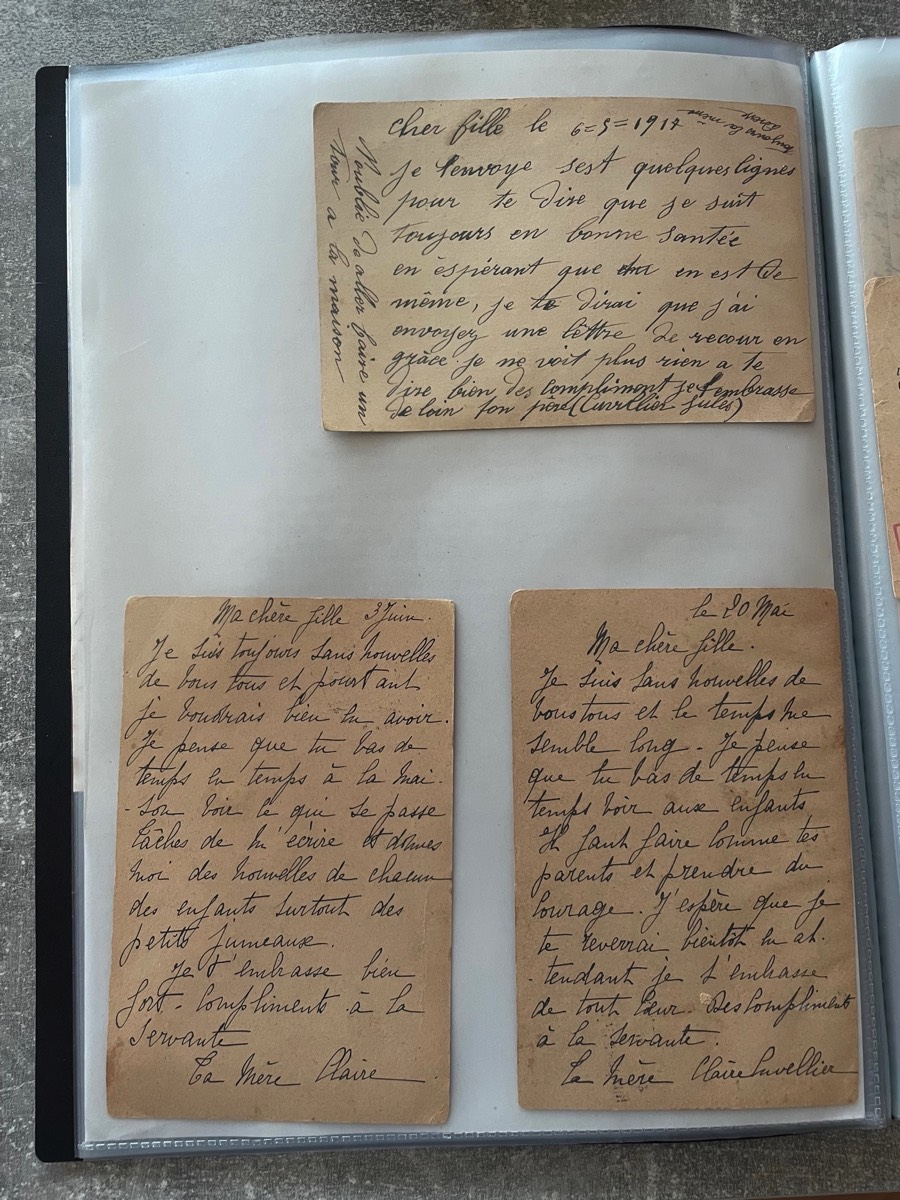 cher fille le 6=5=1917
toujours la même
je t'envoye sest quelques lignes
pour te dire que je suit
toujours en bonne santée
en éspérant que tu en est de
même, je te dirai que j'ai
envoyez une lêttre de recour en
grâce je ne voit plus rien a te
dire bien des compliment je t'embrasse
de loin ton père (Cuvillier Jules)
N'oublie de aller faire un
tour a la maison
Ma chère fille 3 Juin.
Je suis toujours sans nouvelles
de vous tous et pourtant
je voudrais bien en avoir.
Je pense que tu vas de
temps en temps à la mai-
-son voir ce qui se passe
tâches de m'écrire et donnes
moi des nouvelles de chacun
des enfants surtout des
petits jumeaux.
Je t'embrasse bien
fort - compliments à la
servante
Ta Mère Claire
le 20 Mai
Ma chère fille.
Je suis sans nouvelles de
vous tous et le temps me
semble long - Je pense
que tu vas de temps en
temps voir aux enfants
Il faut faire comme tes
parents et prendre du
courage. J'espère que je
te reverrai bientôt en at-
-tendant je t'embrasse
de tout cœur. Des compliments
à la servante.
Ta mère Claire Cuvellier